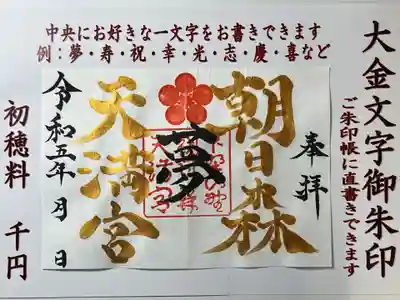 中央にお好きな一文字をお書きできます
例：夢・寿・祝・幸・光・志・慶・喜など
大金文字御朱印
ご朱印帳に直書きできます
奉拝
朝日森
夢
天満宮
令和五年 月 日
初穂料 千円